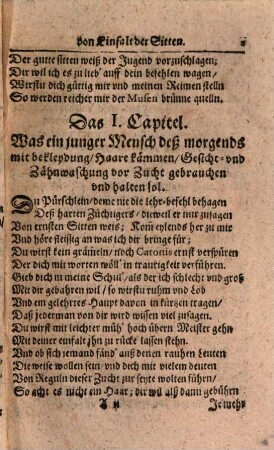 von Einfalt der Sitten.
Der gutte sitten weiß der Jugend vorzuschlagen;
Dir wil ich es zu lieb' auff dein befehlen wagen/
Wirstu dich güttig mir vnd meinen Reimen stelln
So werden reicher mir der Musen brünne quelln.
Das I. Capitel.
Was ein junger Mensch deß morgends
mit bekleydung/Haare kämmen/Gesicht- vnd
Zähnwaschung vor Zucht gebrauchen
vnd halten sol.
Du Pürschlein/deme nie die lehr-befehl behagen
Deß harten Züchtigers/dieweil er nur zusagen
Von ernsten Sitten weis; Kom eylends her zu mir
Vnd höre fleissig an was ich dir bringe für;
Du wirst kein grämeln/noch Catonis ernst verspüren
Der dich mit worten wöll' in traurigkeit verführen.
Gieb dich in meine Schul/als der ich schlecht vnd groß
Mit dir gebahren wil/so wirstu ruhm vnd Lob
Vnd ein gelehrtes Haupt davon in kürtzen tragen/
Daß jederman von dir wird wissen viel zusagen.
Du wirst mit leichter müh' hoch übern Meister gehn
Mit deiner einfalt/ihn zu rücke lassen stehn.
Vnd ob sich jemand fänd' auß denen rauhen Leuten
Die weise wollen sein vnd dich mit vielem deuten
Von Reguln dieser Zucht zur seyte wolten führn/
So acht es nicht ein Haar; dir wil alß dann gebührn
Je mehr